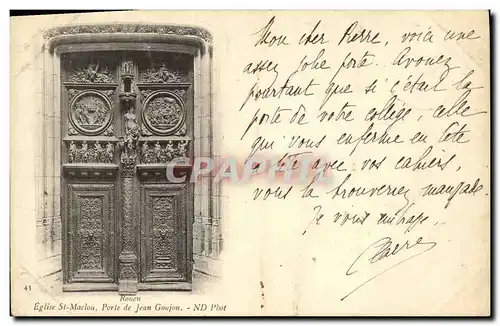 Mon cher Pierre, voici une
assez jolie porte. Avouez
pourtant que si c'était la
porte de votre collège, celle
qui vous enferme en tête
à tête avec vos cahiers,
vous la trouveriez maussade.
Je vous embrasse.
CARTE POSTALE
41
Rouen
Église St-Maclou, Porte de Jean Goujon. - ND Phot